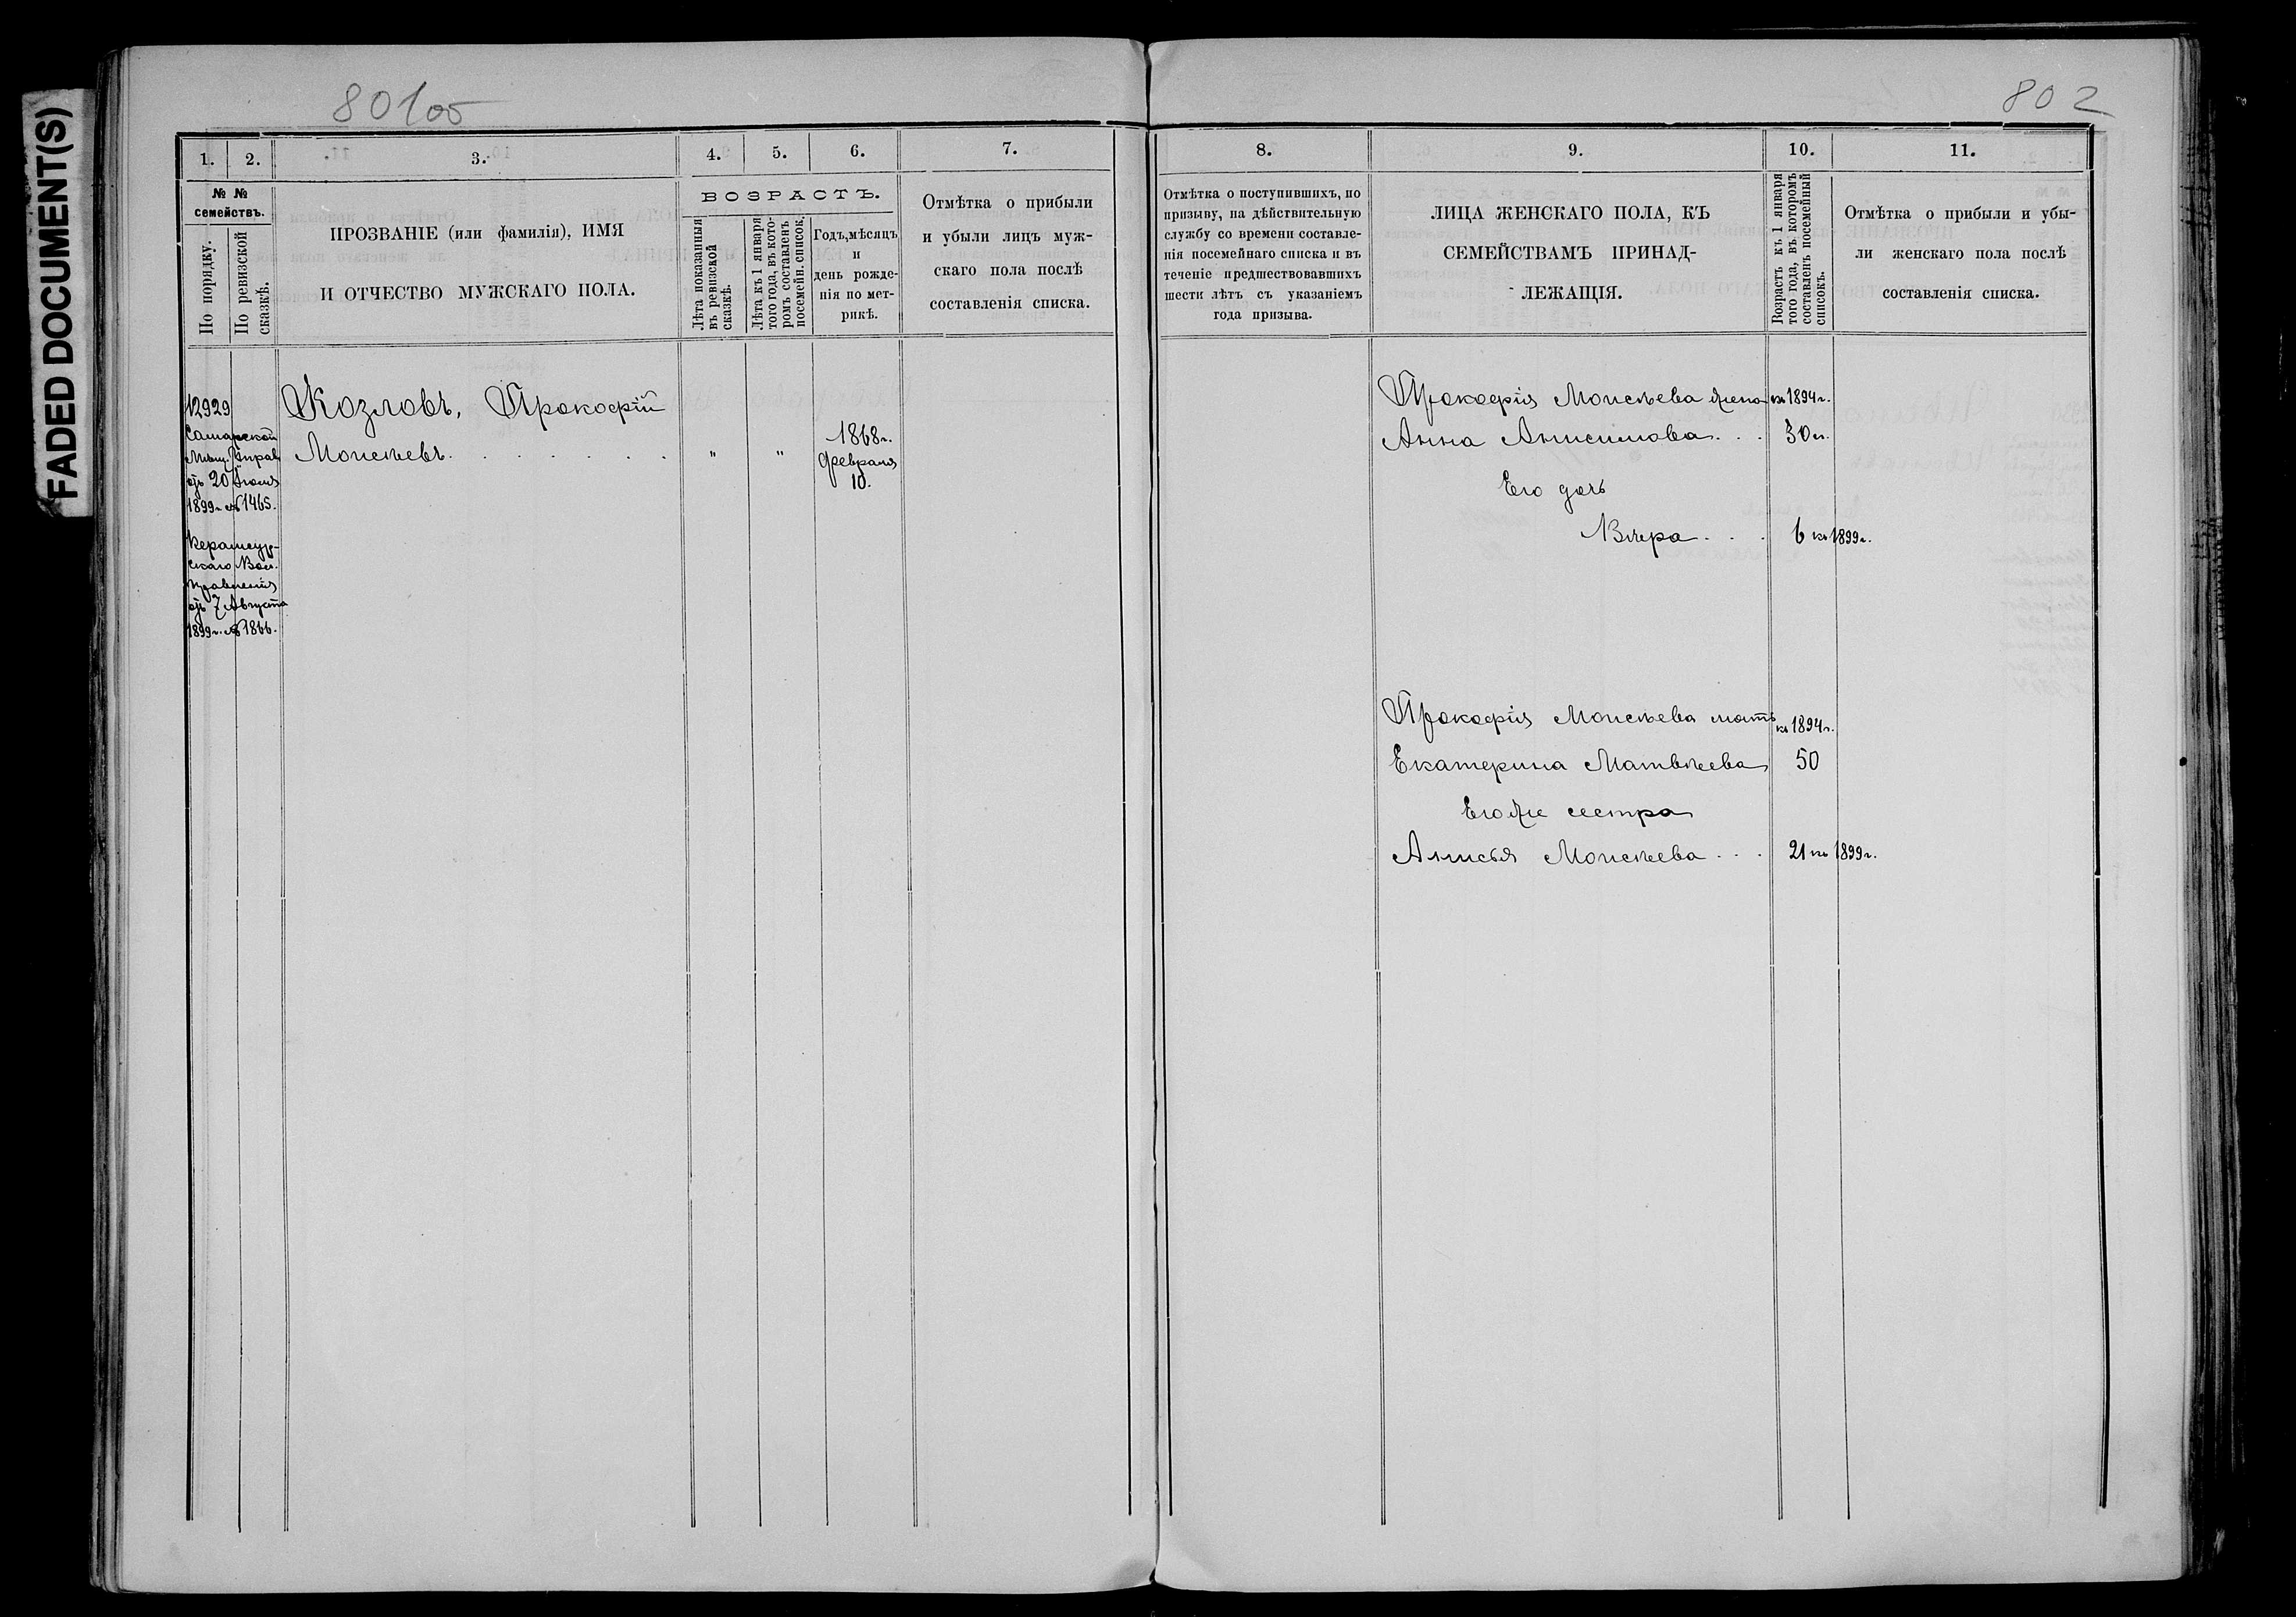 FADED DOCUMENT(S)
801об
802
1.
2.
3.
4.
5.
6.
7.
№ №
семействъ.
По порядку.
По ревизской
сказкѣ.
ПРОЗВАНІЕ (или фамилія), ИМЯ
И ОТЧЕСТВО МУЖСКАГО ПОЛА.
ВОЗРАСТЪ.
Лѣта показанныя
въ ревизской
сказкѣ.
Лѣта къ 1 января
того года, въ кото-
ромъ составленъ
посемейн. список.
Годъ, мѣсяцъ
и
день рожде-
нія по мет-
рикѣ.
Отмѣтка о прибыли
и убыли лицъ муж-
скаго пола послѣ
составленія списка.
12929
Самарской
Мѣщ. Управ.
отъ 20 Іюля
1899 г. № 1465.
Вол.
Правленія
отъ 7 Августа
1899 г. № 1866.
Козловъ, Прокофій
Моисѣевъ . . . . . . .
"
"
1868 г.
Февраля
10.
8.
9.
10.
11.
Отмѣтка о поступившихъ, по
призыву, на дѣйствительную
службу со времени составле-
нія посемейнаго списка и въ
теченіе предшествовавшихъ
шести лѣтъ съ указаніемъ
года призыва.
ЛИЦА ЖЕНСКАГО ПОЛА, КЪ
СЕМЕЙСТВАМЪ ПРИНАД-
ЛЕЖАЩІЯ.
Возрастъ къ 1 января
того года, въ которомъ
составленъ посемейный
списокъ.
Отмѣтка о прибыли и убы-
ли женскаго пола послѣ
составленія списка.
Прокофія Моисѣева жена къ 1894 г.
Анна Анисимова . . . 30 л.
Его дочь
Вѣра . . . 6 къ 1899 г.
Прокофія Моисѣева мать къ 1894 г.
Екатерина Матвѣева 50
Его же сестра
Анисья Моисѣева . . . 21 къ 1899 г.